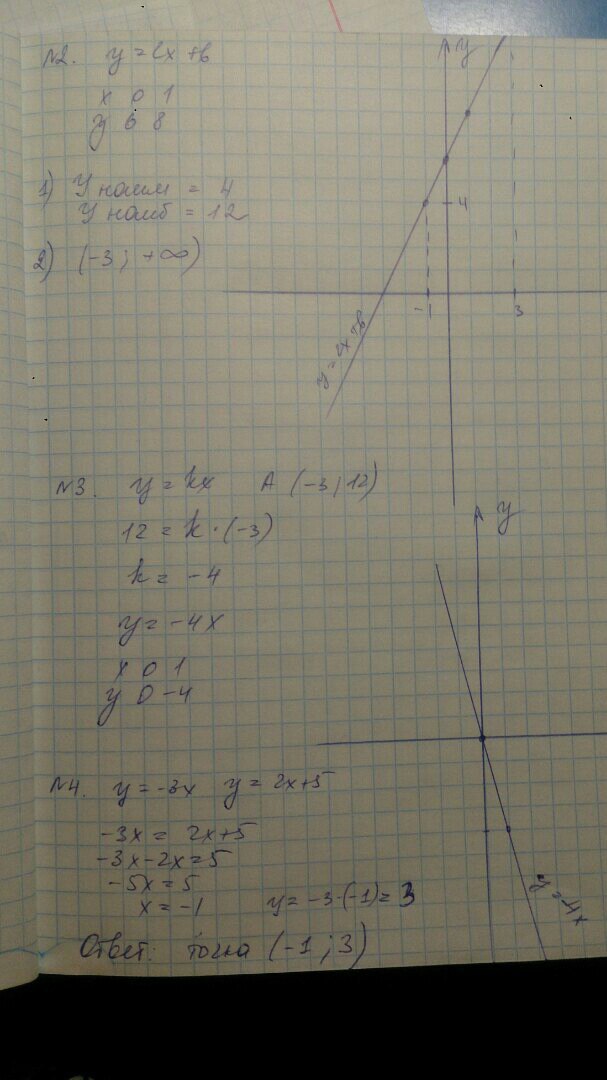 N2. y = 2x + 6
x 0 1
y 6 8
1) У наим = 4
У наиб = 12
2) (-3; +∞)
y
4
-1
3
y = 2x + 6
N3. y = kx A (-3; 12)
12 = k · (-3)
k = -4
y = -4x
x 0 1
y 0 -4
y
y = -4x
N4. y = -3x y = 2x+5
-3x = 2x+5
-3x-2x=5
-5x=5
x = -1 y = -3·(-1) = 3
Ответ: точка (-1; 3)